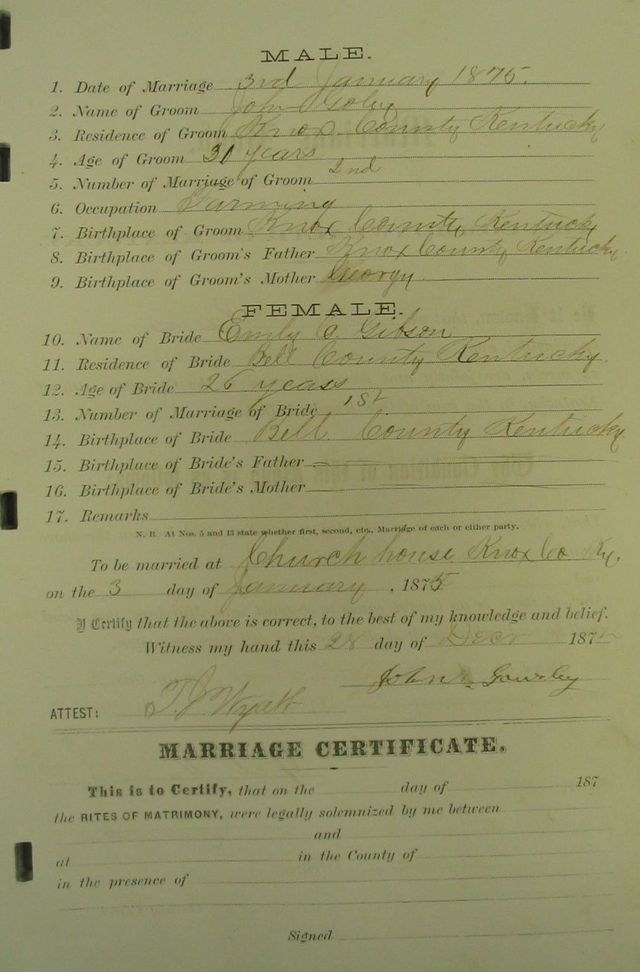 MALE.
1. Date of Marriage 3rd January 1875.
2. Name of Groom John
3. Residence of Groom Knox County Kentucky
4. Age of Groom 31 years
5. Number of Marriage of Groom 2nd
6. Occupation Farming
7. Birthplace of Groom Knox County, Kentucky
8. Birthplace of Groom's Father Knox County Kentucky
9. Birthplace of Groom's Mother Georgy
FEMALE.
10. Name of Bride Emily C. Gibson
11. Residence of Bride Bell County Kentucky.
12. Age of Bride 26 years
13. Number of Marriage of Bride 1st
14. Birthplace of Bride Bell County Kentucky
15. Birthplace of Bride's Father
16. Birthplace of Bride's Mother
17. Remarks
N. B. At Nos. 5 and 13 state whether first, second, etc., Marriage of each or either party.
To be married at Church house Knox Co Ky.
on the 3 day of January, 1875
I Certify that the above is correct, to the best of my knowledge and belief.
Witness my hand this 28 day of Decr 187
John
ATTEST:
MARRIAGE CERTIFICATE.
This is to Certify, that on the day of 187
the RITES OF MATRIMONY, were legally solemnized by me between
and
at in the County of
in the presence of
Signed